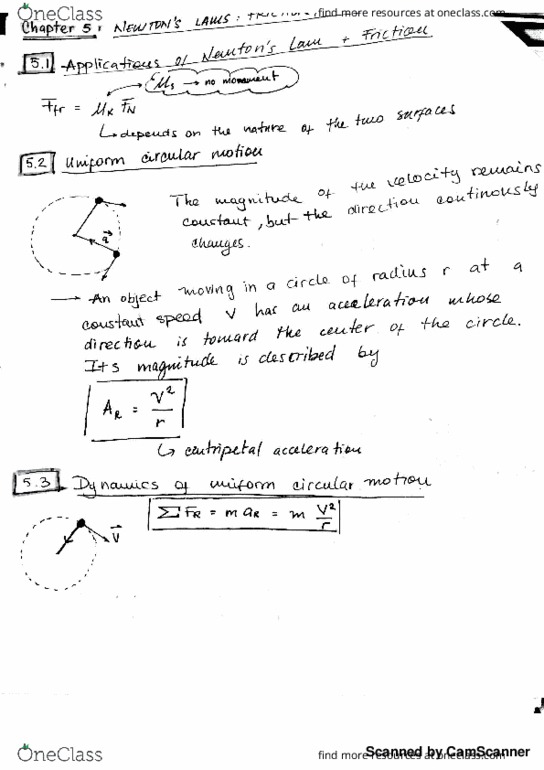 OneClass
find more resources at oneclass.com
Chapter 5: NEWTON'S LAWS: FRICTION
5.1 Applications of Newton's Law + Friction
μs → no movement
Ffr = μk FN
↳ depends on the nature of the two surfaces
5.2 Uniform circular motion
The magnitude of the velocity remains
constant, but the direction continously
changes.
a
→ An object moving in a circle of radius r at a
constant speed v has an acceleration whose
direction is toward the center of the circle.
It's magnitude is described by
AR = V²/r
↳ centripetal acceleration
5.3 Dynamics of uniform circular motion
ΣFR = m aR = m V²/r
V
OneClass
find more resources at oneclass.com
Scanned by CamScanner